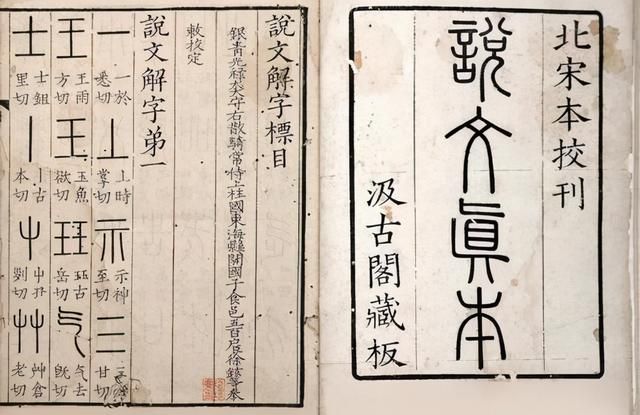 北宋本挍刊
說文眞本
汲古閣藏板
說文解字標目
銀青光祿大夫守右散騎常侍上柱國東海縣開國子食邑五百戶臣徐鉉等奉
敕挍定
說文解字弟一
一 一於悉切 丄 丄時掌切 示 示神至切 三 甘切
王 王雨方切 玉 玉魚欲切 玨 玨古岳切 气 气去旣切
士 士鉏里切 丨 丨古本切 屮 屮丑切 艸 艸倉老切